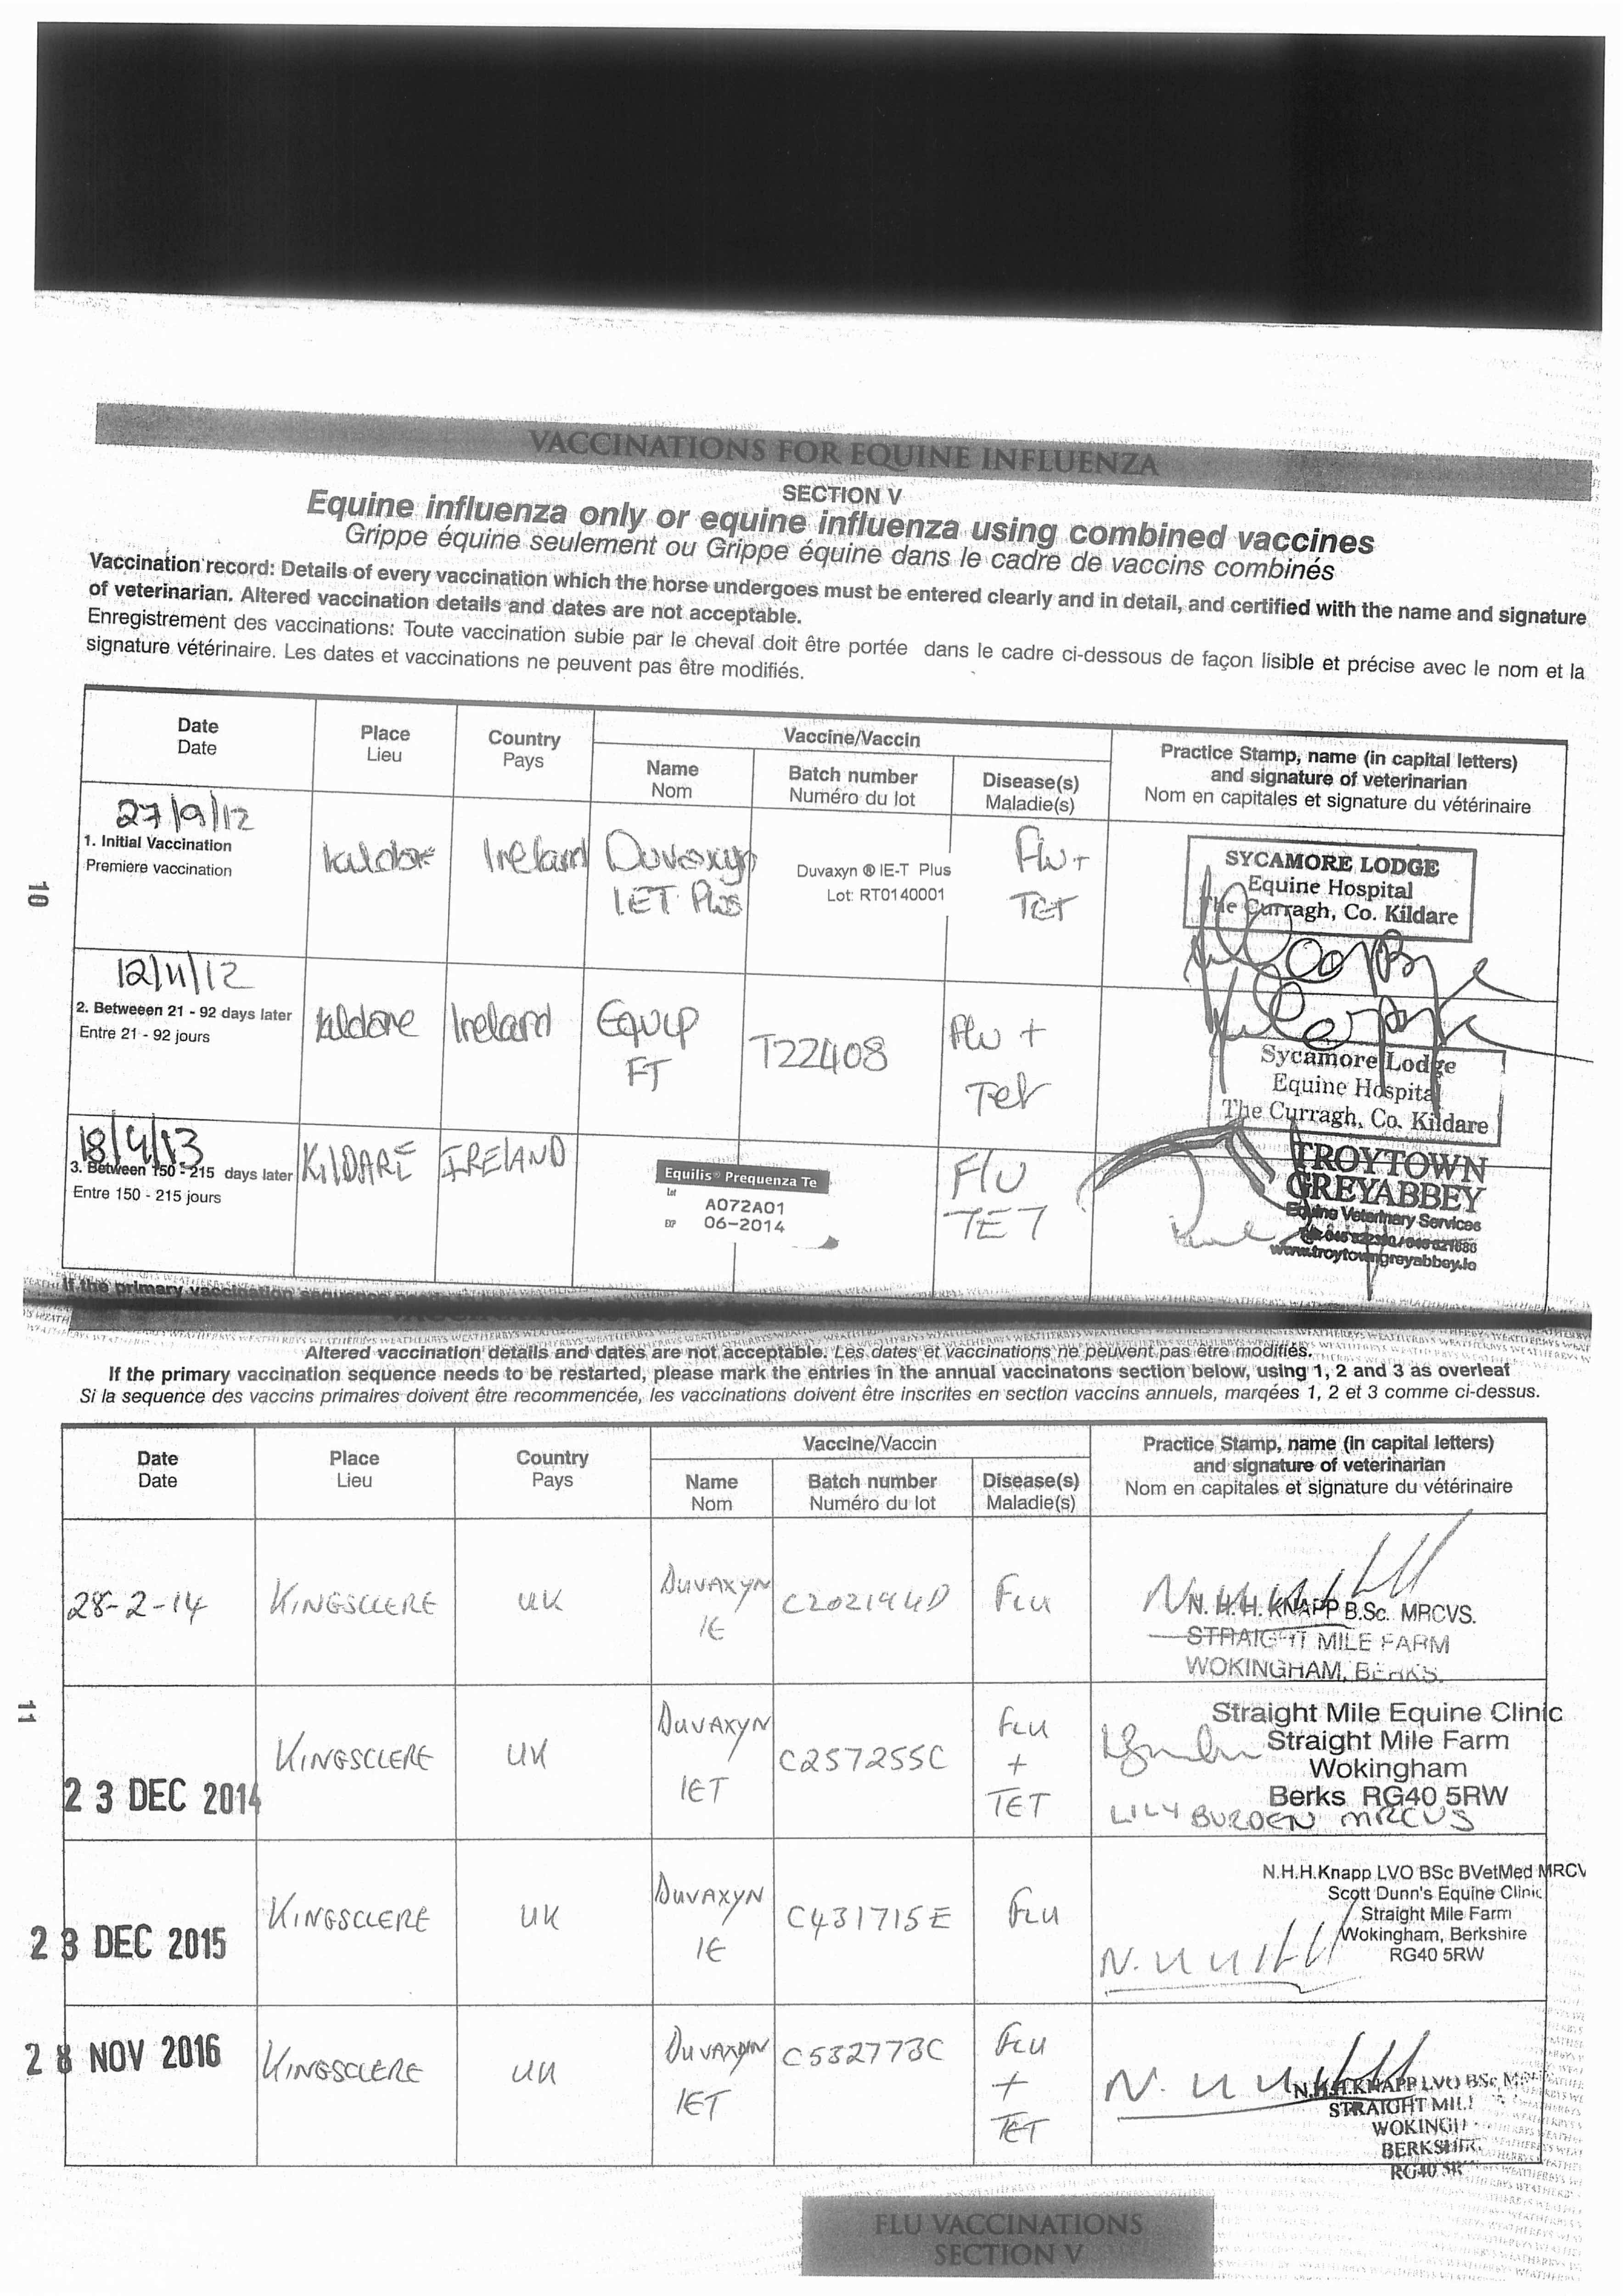 VACCINATIONS FOR EQUINE INFLUENZA
SECTION V
Equine influenza only or equine influenza using combined vaccines
Grippe équine seulement ou Grippe équine dans le cadre de vaccins combinés
Vaccination record: Details of every vaccination which the horse undergoes must be entered clearly and in detail, and certified with the name and signature
of veterinarian. Altered vaccination details and dates are not acceptable.
Enregistrement des vaccinations: Toute vaccination subie par le cheval doit être portée dans le cadre ci-dessous de façon lisible et précise avec le nom et la
signature vétérinaire. Les dates et vaccinations ne peuvent pas être modifiés.
Date
Date
Place
Lieu
Country
Pays
Vaccine/Vaccin
Name
Nom
Batch number
Numéro du lot
Disease(s)
Maladie(s)
Practice Stamp, name (in capital letters)
and signature of veterinarian
Nom en capitales et signature du vétérinaire
27/9/12
1. Initial Vaccination
Premiere vaccination
Kildare
Ireland
Duvaxyn
IET Plus
Duvaxyn ® IE-T Plus
Lot: RT0140001
Flu +
TET
SYCAMORE LODGE
Equine Hospital
The Curragh, Co. Kildare
12/11/12
2. Betweeen 21 - 92 days later
Entre 21 - 92 jours
Kildare
Ireland
Equip
FT
T22408
Flu +
Tet
Sycamore Lodge
Equine Hospital
The Curragh, Co. Kildare
18/4/13
3. Between 150 - 215 days later
Entre 150 - 215 jours
KILDARE
IRELAND
Equilis® Prequenza Te
Lot
A072A01
EXP 06-2014
FLU
TET
TROYTOWN
GREYABBEY
Equine Veterinary Services
www.troytowngreyabbey.ie
If the primary vaccination sequence
10
Altered vaccination details and dates are not acceptable. Les dates et vaccinations ne peuvent pas être modifiés.
If the primary vaccination sequence needs to be restarted, please mark the entries in the annual vaccinatons section below, using 1, 2 and 3 as overleaf
Si la sequence des vaccins primaires doivent être recommencée, les vaccinations doivent être inscrites en section vaccins annuels, marqées 1, 2 et 3 comme ci-dessus.
Date
Date
Place
Lieu
Country
Pays
Vaccine/Vaccin
Name
Nom
Batch number
Numéro du lot
Disease(s)
Maladie(s)
Practice Stamp, name (in capital letters)
and signature of veterinarian
Nom en capitales et signature du vétérinaire
28-2-14
KINGSCLERE
UK
DUVAXYN
IE
C202194D
FLU
N. H. H. KNAPP B.Sc. MRCVS.
STRAIGHT MILE FARM
WOKINGHAM, BERKS.
23 DEC 2014
KINGSCLERE
UK
DUVAXYN
IET
C257255C
FLU
+
TET
Straight Mile Equine Clinic
Straight Mile Farm
Wokingham
Berks RG40 5RW
LILY BURDEN MRCVS
23 DEC 2015
KINGSCLERE
UK
DUVAXYN
IE
C431715E
FLU
N.H.H.Knapp LVO BSc BVetMed MRCV
Scott Dunn's Equine Clinic
Straight Mile Farm
Wokingham, Berkshire
RG40 5RW
28 NOV 2016
KINGSCLERE
UK
DUVAXYN
IET
C532773C
FLU
+
TET
N.H.H.KNAPP LVO BSc
STRAIGHT MIL
WOKINGH
BERKSHIR
RG40 5R
11
FLU VACCINATIONS
SECTION V